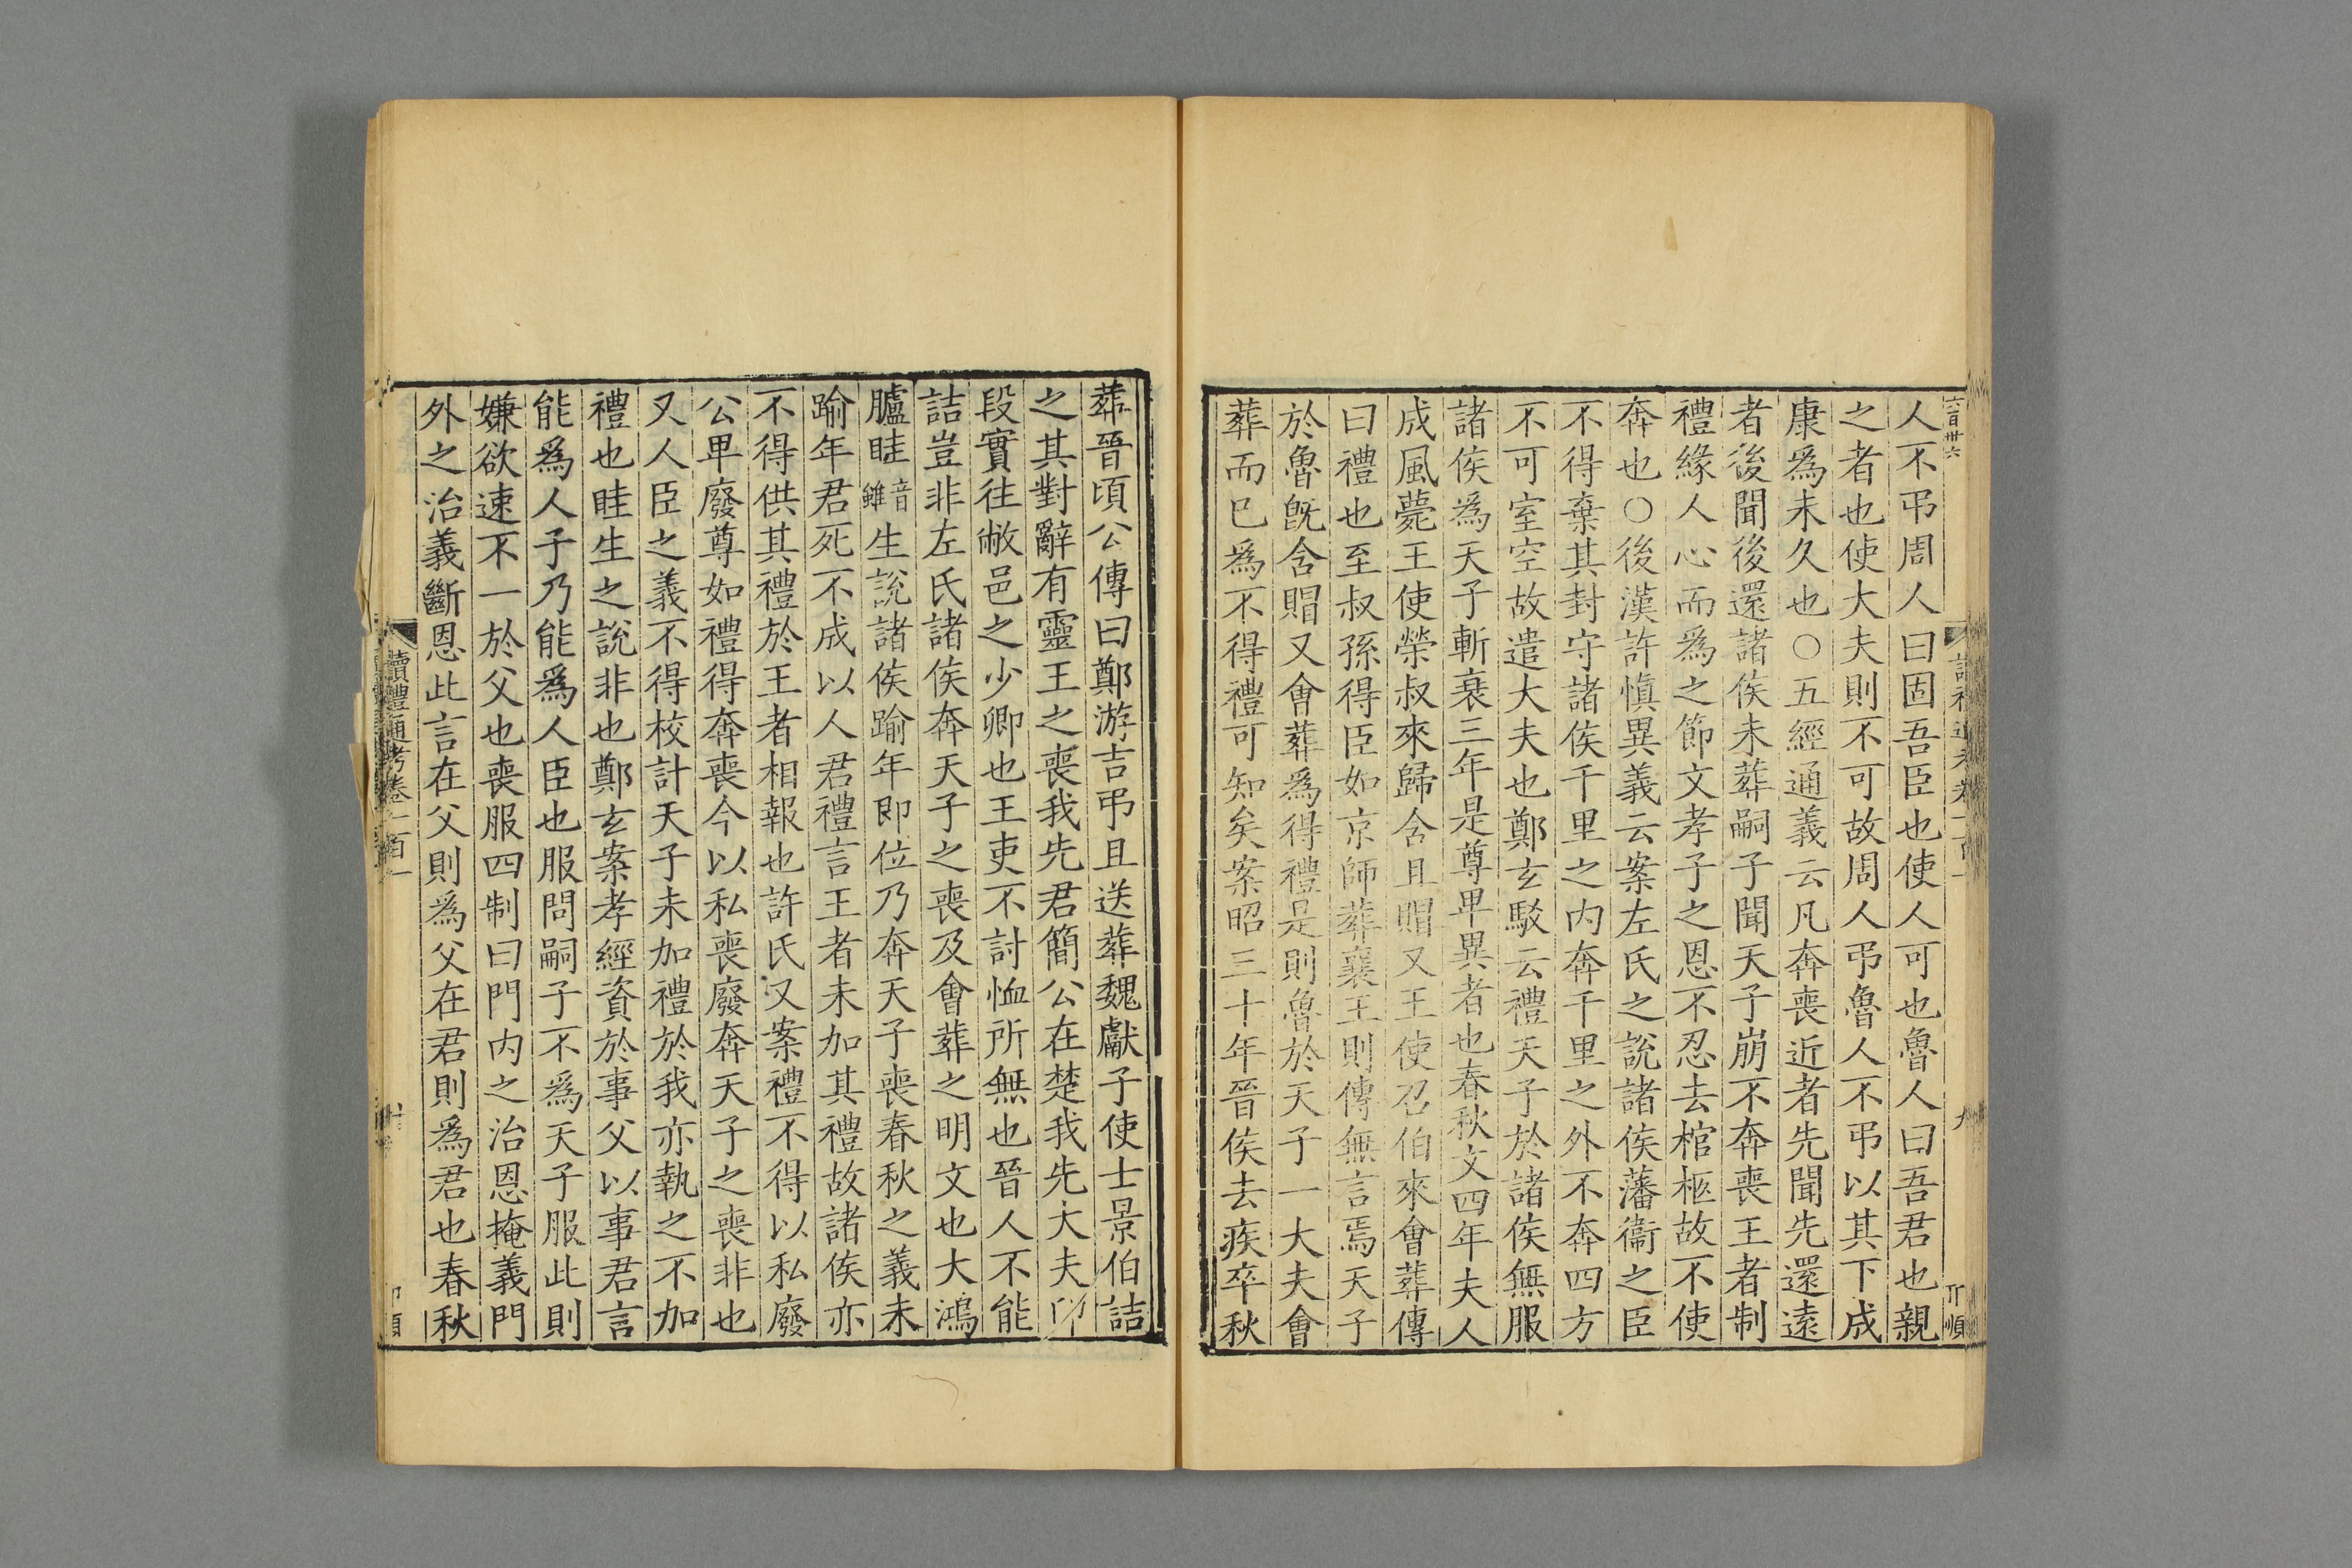 六百卅六
人不弔周人曰固吾臣也使人可也魯人曰吾君也親
之者也使大夫則不可故周人弔魯人不弔以其下成
康爲未久也○五經通義云凡奔喪近者先聞先還遠
者後聞後還諸侯未葬嗣子聞天子崩不奔喪王者制
禮緣人心而爲之節文孝子之恩不忍去棺柩故不使
奔也○後漢許愼異義云案左氏之說諸侯藩衞之臣
不得棄其封守諸侯千里之内奔千里之外不奔四方
不可室空故遣大夫也鄭玄駁云禮天子於諸侯無服
諸侯爲天子斬衰三年是尊卑異者也春秋文四年夫人
成風薨王使榮叔來歸含且賵又王使召伯來會葬傳
曰禮也至叔孫得臣如京師葬襄王則傳無言焉天子
於魯旣含賵又會葬爲得禮是則魯於天子一大夫會
葬而已爲不得禮可知矣案昭三十年晉侯去疾卒秋
葬晉頃公傳曰鄭游吉弔且送葬魏獻子使士景伯詰
之其對辭有靈王之喪我先君簡公在楚我先大夫印
段實往敝邑之少卿也王吏不討恤所無也晉人不能
詰豈非左氏諸侯奔天子之喪及會葬之明文也大鴻
臚眭音雖生說諸侯踰年即位乃奔天子喪春秋之義未
踰年君死不成以人君禮言王者未加其禮故諸侯亦
不得供其禮於王者相報也許氏又案禮不得以私廢
公卑廢尊如禮得奔喪今以私喪廢奔天子之喪非也
又人臣之義不得校計天子未加禮於我亦執之不加
禮也眭生之說非也鄭玄案孝經資於事父以事君言
能爲人子乃能爲人臣也服問嗣子不爲天子服此則
嫌欲速不一於父也喪服四制曰門内之治恩掩義門
外之治義斷恩此言在父則爲父在君則爲君也春秋
讀禮通考卷一百一